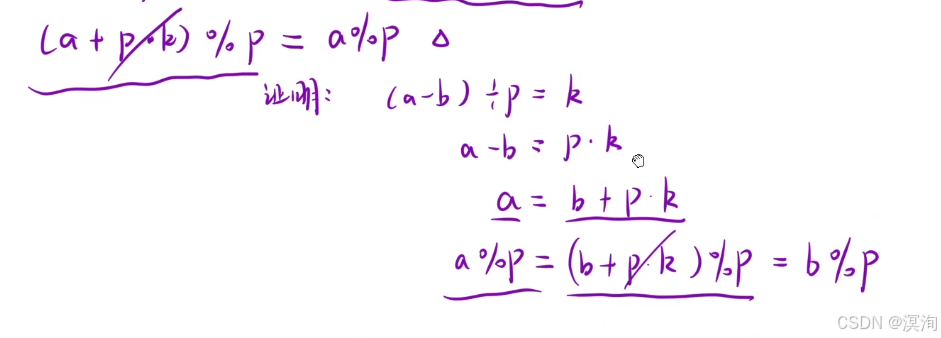 (a + p·k) % p = a%p △
证明: (a-b) ÷ p = k
a - b = p·k
a = b + p·k
a%p = (b + p·k) % p = b%p
CSDN @溟洵